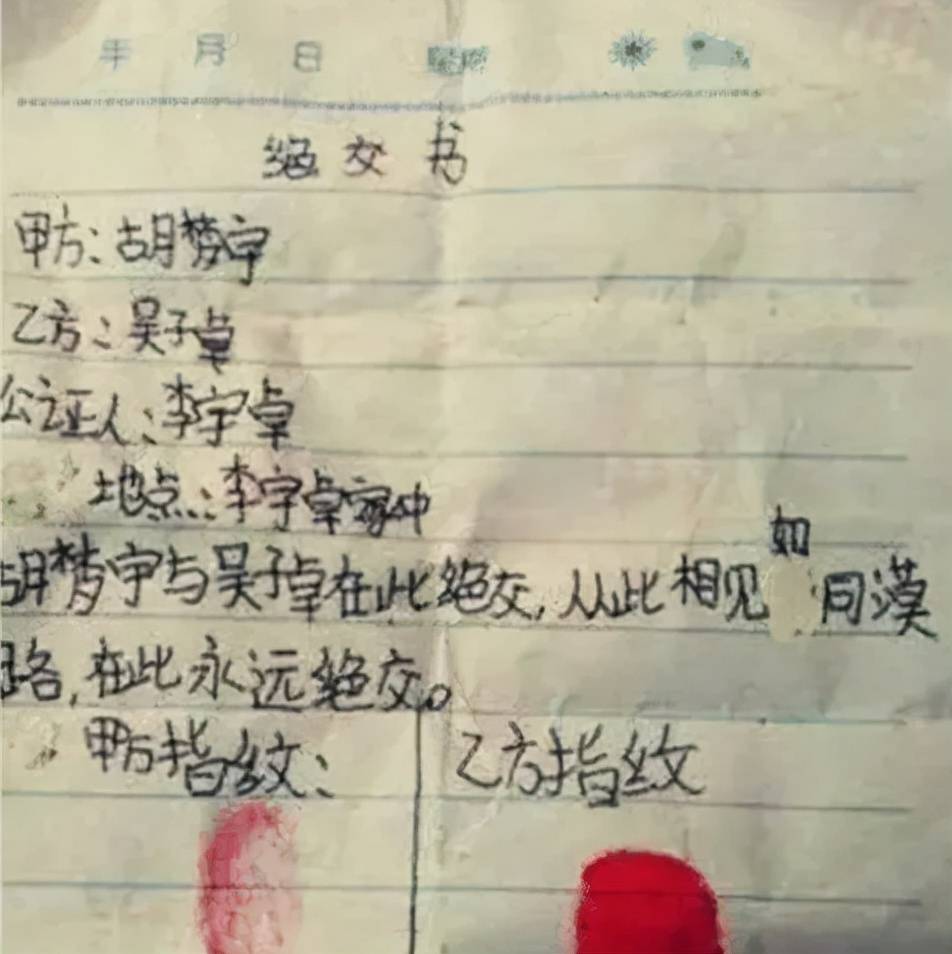 年 月 日
绝交书
甲方:胡梦宇
乙方:吴子卓
公证人:李宇卓
地点:李宇卓家中
如
胡梦宇与吴子卓在此绝交,从此相见 同漠
路,在此永远绝交。
甲方指纹: 乙方指纹